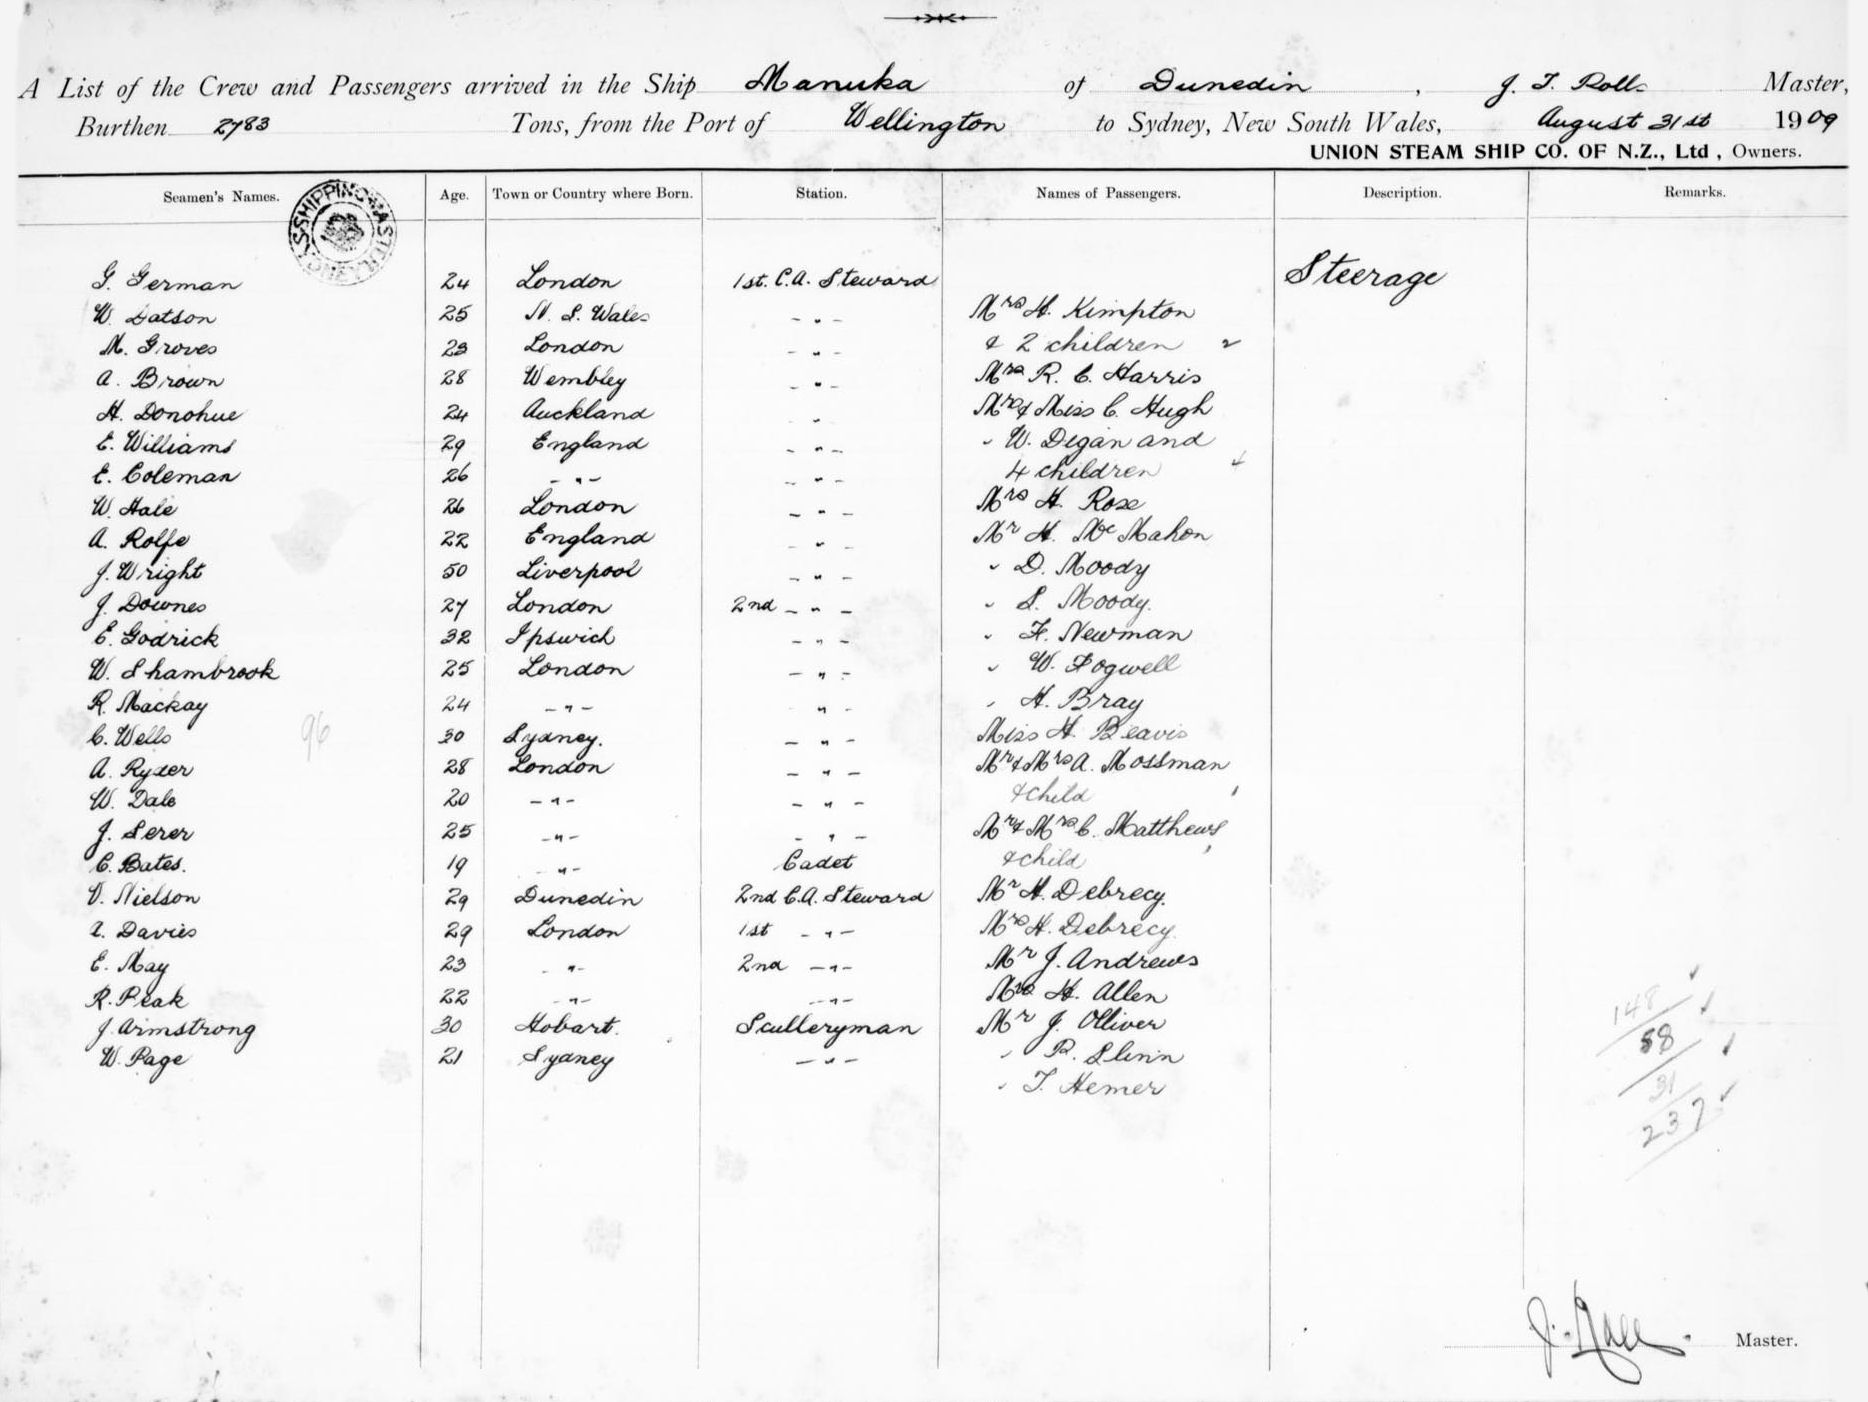 A List of the Crew and Passengers arrived in the Ship Manuka of Dunedin , J. T. Rolls Master,
Burthen 2783 Tons, from the Port of Wellington to Sydney, New South Wales, August 31st 1909
UNION STEAM SHIP CO. OF N.Z., Ltd , Owners.
Seamen's Names. Age. Town or Country where Born. Station. Names of Passengers. Description. Remarks.
SHIPPING MASTER
G. German 24 London 1st. C.A. Steward Steerage
W. Datson 25 N. S. Wales - " - Mrs H. Kimpton
M. Groves 23 London - " - & 2 children 2
A. Brown 28 Wembley - " - Mrs R. C. Harris
H. Donohue 24 Auckland " Mrs & Miss C. Hugh
E. Williams 29 England - " - " W. Degan and
E. Coleman 26 - " - - " - 4 children 4
W. Hale 26 London - " - Mrs H. Rose
A. Rolfe 22 England - " - Mr H. McMahon
J. Wright 50 Liverpool - " - " D. Moody
J. Downes 27 London 2nd - " - " S. Moody.
E. Godrick 32 Ipswich - " - " F. Newman
W. Shambrook 25 London - " - " W. Fogwell
R. Mackay 24 - " - " - " H. Bray
C. Wells 96 30 Sydney. - " - Miss H. Beavis
A. Ryder 28 London - " - Mr & Mrs A. Mossman
W. Dale 20 - " - - " - & child
J. Serer 25 - " - - " - Mr & Mrs C. Matthews
C. Bates. 19 - " - Cadet & child
V. Nielson 29 Dunedin 2nd C.A. Steward Mr H. Debrecy.
Davies 29 London 1st - " - Mrs H. Debrecy.
E. May 23 - " - 2nd - " - Mr J. Andrews
R. Peak 22 - " - - " - Mrs H. Allen
J. Armstrong 30 Hobart. Sculleryman Mr J. Olliver
W. Page 21 Sydney - " - " R. Slinn
" T. Hemer
148
58
31
237
Master.